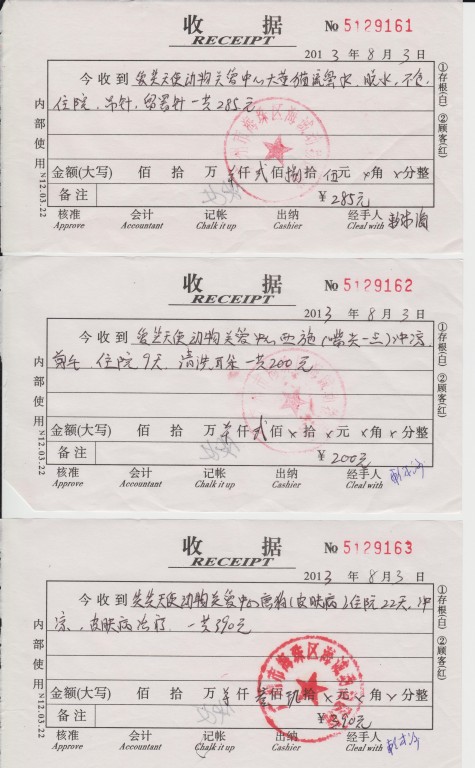 收 据
RECEIPT
No 5129161
2013 年 8 月 3 日
今收到 天使动物关爱中心大
住院、吊针、留置针一共285元
金额(大写) 佰 拾 万 仟 贰 佰 捌 拾 伍 元 × 角 × 分整
备注 ¥ 285元
核准 会计 记帐 出纳 经手人
Approve Accountant Chalk it up Cashier Cleal with
内部使用 N12.03.22
①存根(白) ②顾客(红)
收 据
RECEIPT
No 5129162
2013 年 8 月 3 日
今收到 天使动物关爱中心西施(嘴尖一点)冲凉、
住院9天、清洗耳朵一共200元
金额(大写) 佰 拾 万 仟 贰 佰 × 拾 × 元 × 角 × 分整
备注 ¥ 200元
核准 会计 记帐 出纳 经手人
Approve Accountant Chalk it up Cashier Cleal with
内部使用 N12.03.22
①存根(白) ②顾客(红)
收 据
RECEIPT
No 5129163
2013 年 8 月 3 日
今收到 天使动物关爱中心 (皮肤病)住院22天、冲
凉、皮肤病治疗 一共390元
金额(大写) 佰 拾 万 仟 叁 佰 玖 拾 × 元 × 角 × 分整
备注 ¥ 390元
核准 会计 记帐 出纳 经手人
Approve Accountant Chalk it up Cashier Cleal with
内部使用 N12.03.22
①存根(白) ②顾客(红)
广州市海珠区